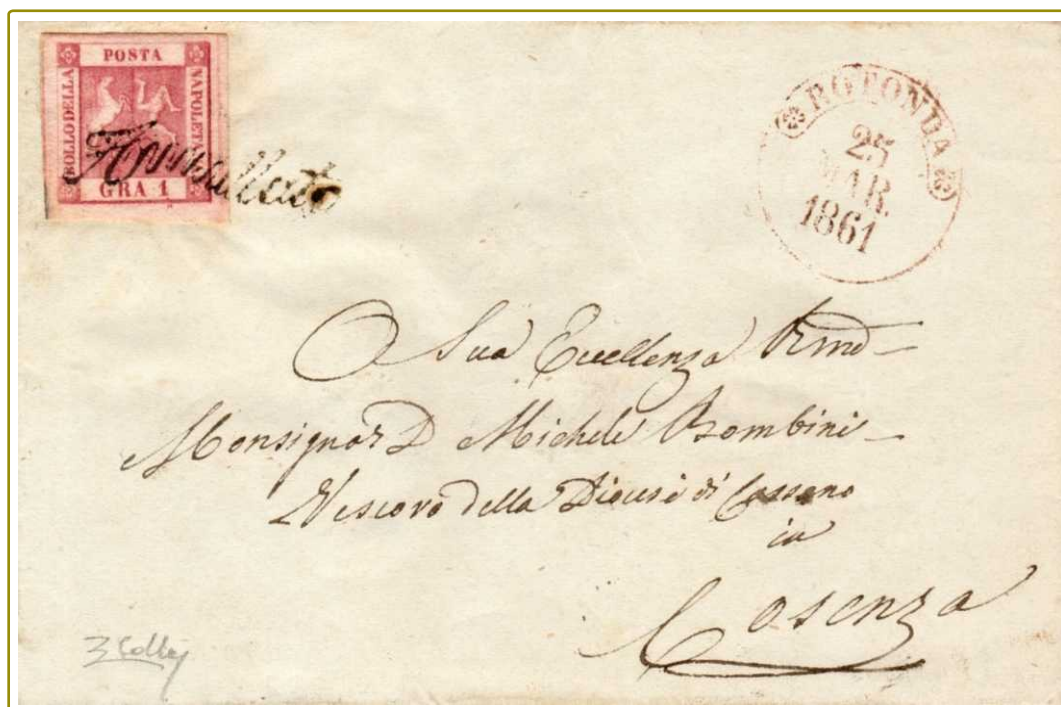 POSTA
BOLLO DELLA
NAPOLETA
GRA 1
Annullato
ROTONDA
25
MAR.
1861
A Sua Eccellenza Rmã
Monsignor D Michele Bombini
Vescovo della Diocesi di Cassano
in
Cosenza